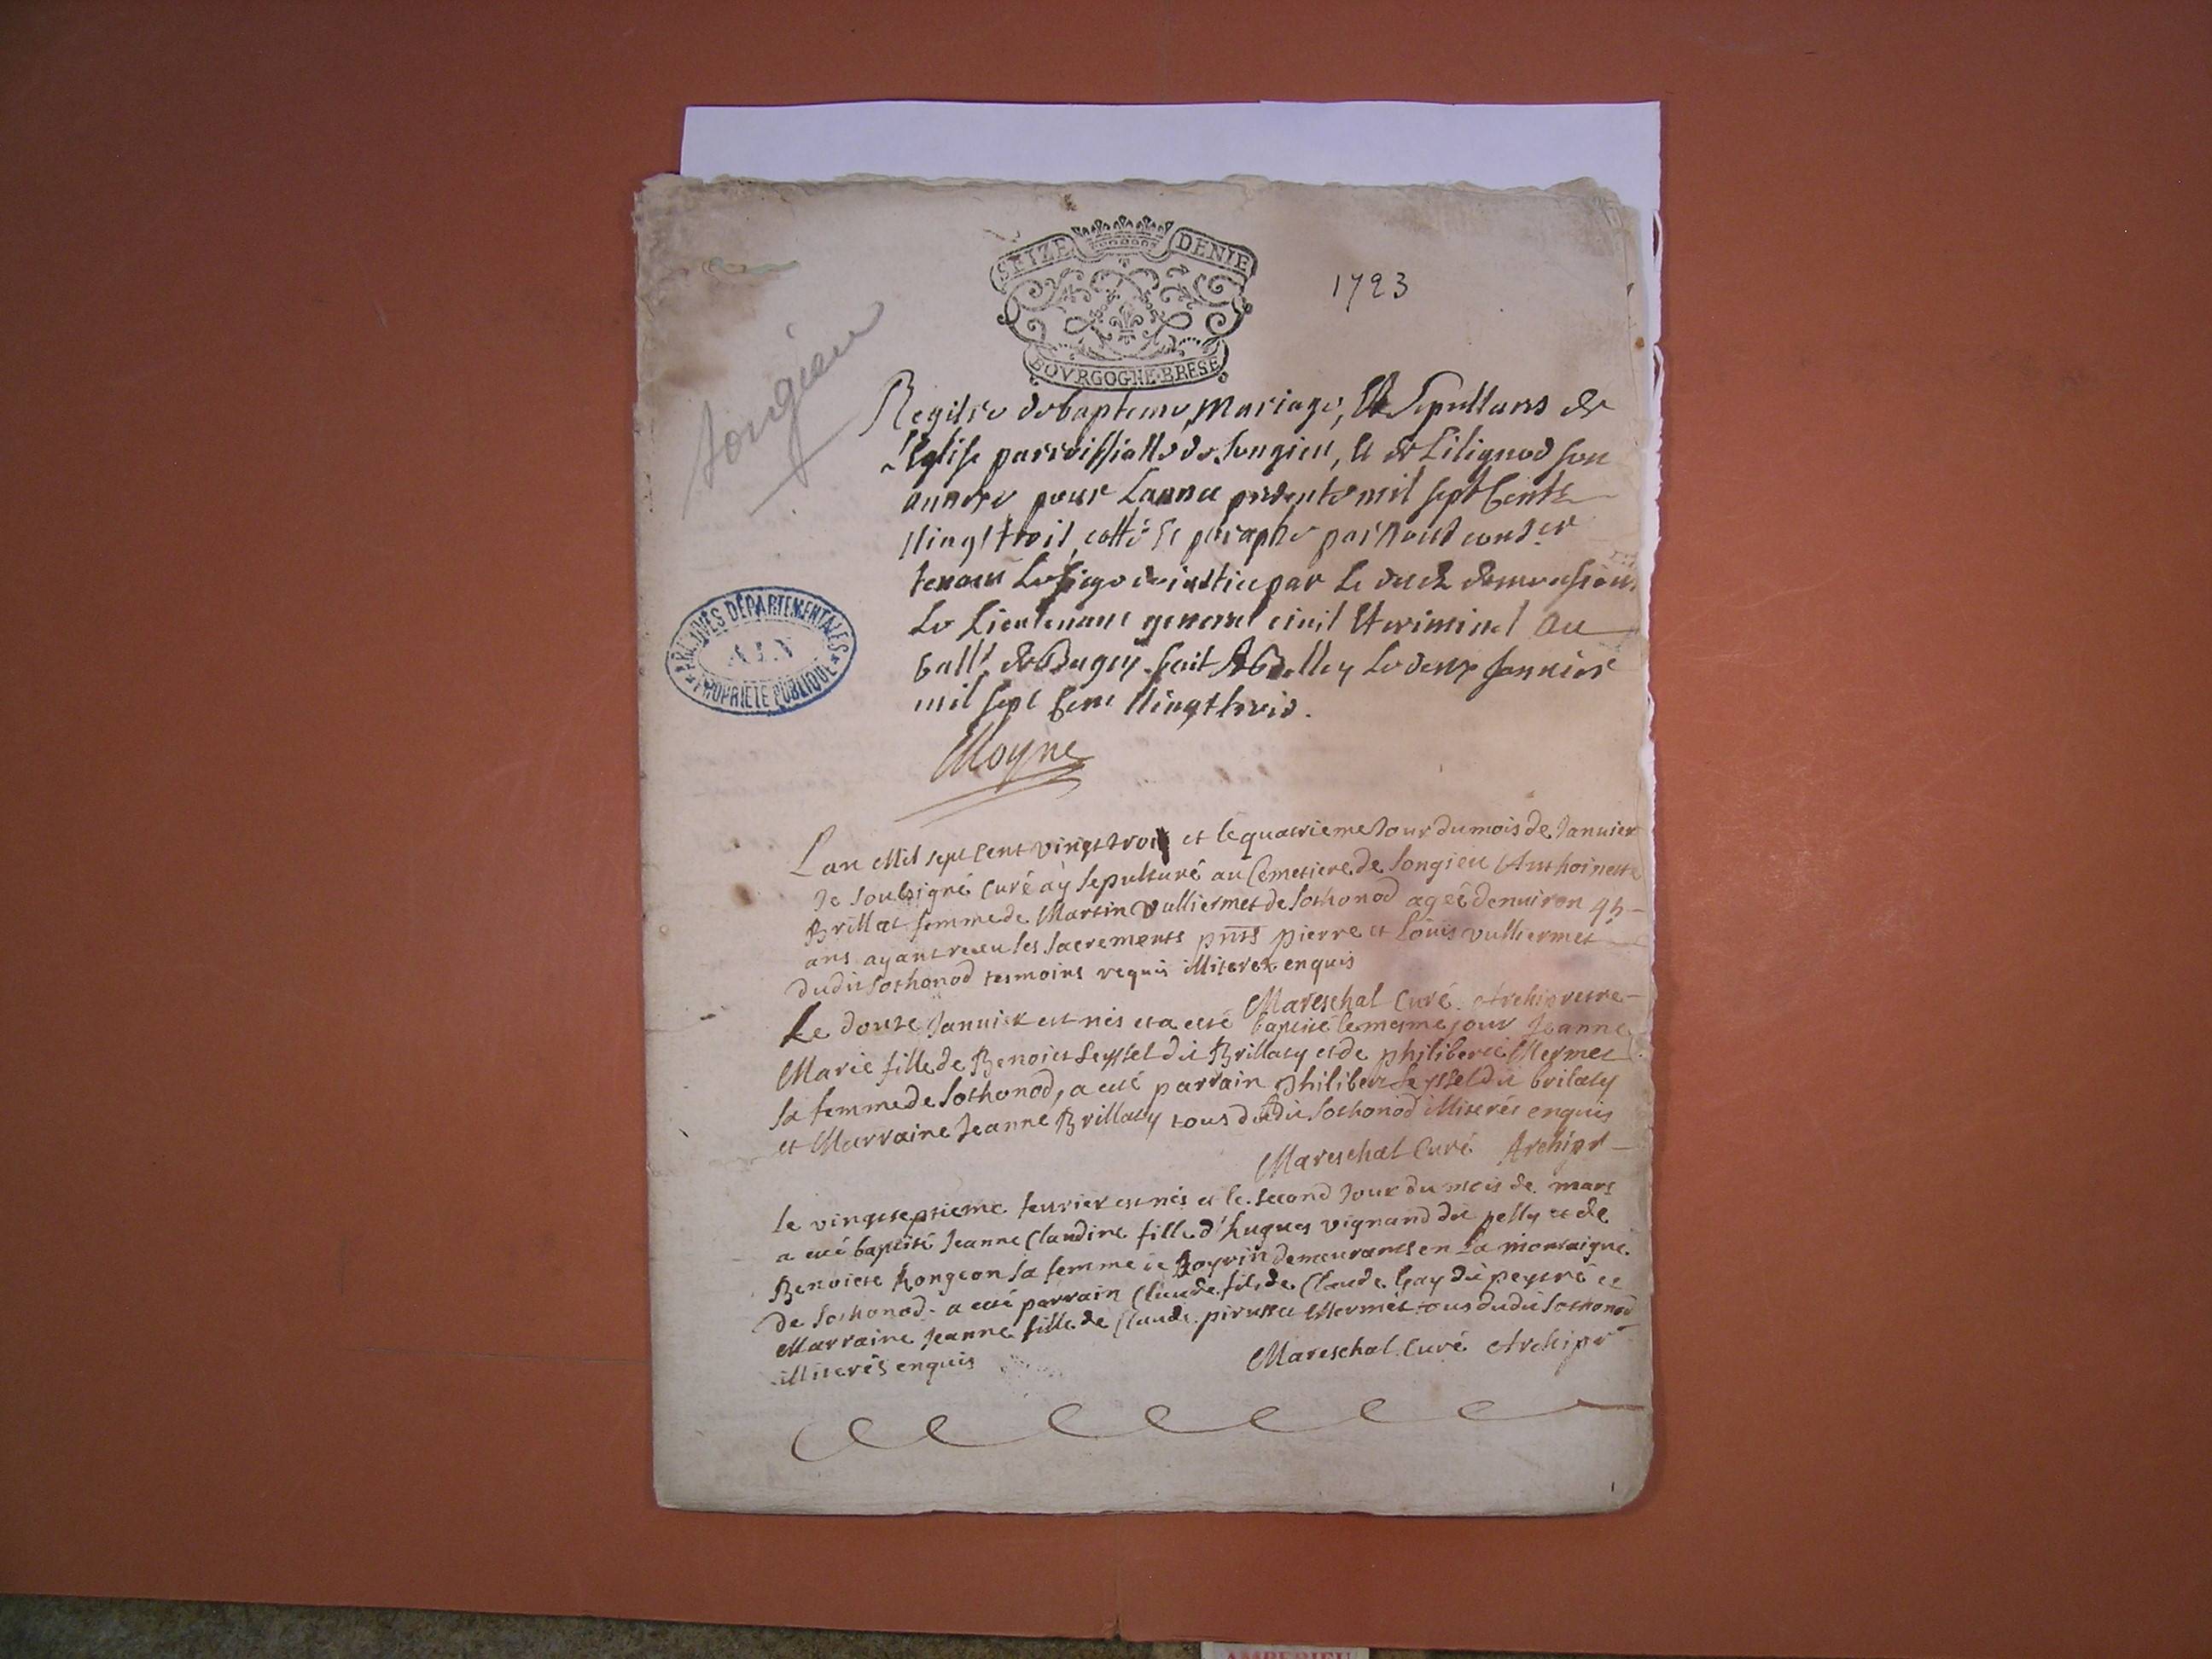 SEIZE DENIE
BOVRGOGNE·BRESE
1723
songieu
Registre de bapteme, Mariage, Et Sepulture de
L'Eglise parroissialle de Songieu, et de Lilignod son
annexe pour Lannee presente mil sept Cents
Vingt trois, cotté Et paraphé par Nous
tenant Le siege de iustice par Le
Le Lieutenant general civil Et criminel Au
ball.^e de Bugey. fait A Belley Le deux Janvier
mil sept Cent Vingt trois.
Moyne
ARCHIVES DÉPARTEMENTALES
AIN
PROPRIÉTÉ PUBLIQUE
L'an Mil sept Cent vingt trois et le quatrieme Jour du mois de Janvier
Je soubsigné Curé ay sepulturé au Cemetiere de Songieu Anthoinette
Brillat femme de Martin Vulliermet de Sothonod agée denviron 45
ans ayant receu les sacrements pnts pierre et Louis vulliermet
dudit Sothonod tesmoins requis illiterez enquis
Mareschal Curé Archipretre
Le douze Janvier est nés et a eté baptisé le mesme jour Jeanne
Marie fille de Benoict Seyssel dit Brillaty et de philiberte Mermet
sa femme de Sothonod, a eté parrain philibert Seyssel dit brilaty
et Marraine Jeanne Brillaty tous dudit Sothonod illiterés enquis
Mareschal Curé Archipr
le vingtseptieme feurier est nés et le second Jour du mois de mars
a eté baptisé Jeanne Claudine fille d'hugues vignand dit pelly et de
Benoicte Rongeon sa femme de demeurants en La montaigne
De Sothonod. a eté parrain Claude fils de Claude Gay dit peytré et
Marraine Jeanne fille de Claude Mermet tous dudit Sothonod
illiterés enquis
Mareschal Curé Archipr
1
AMBERIEU